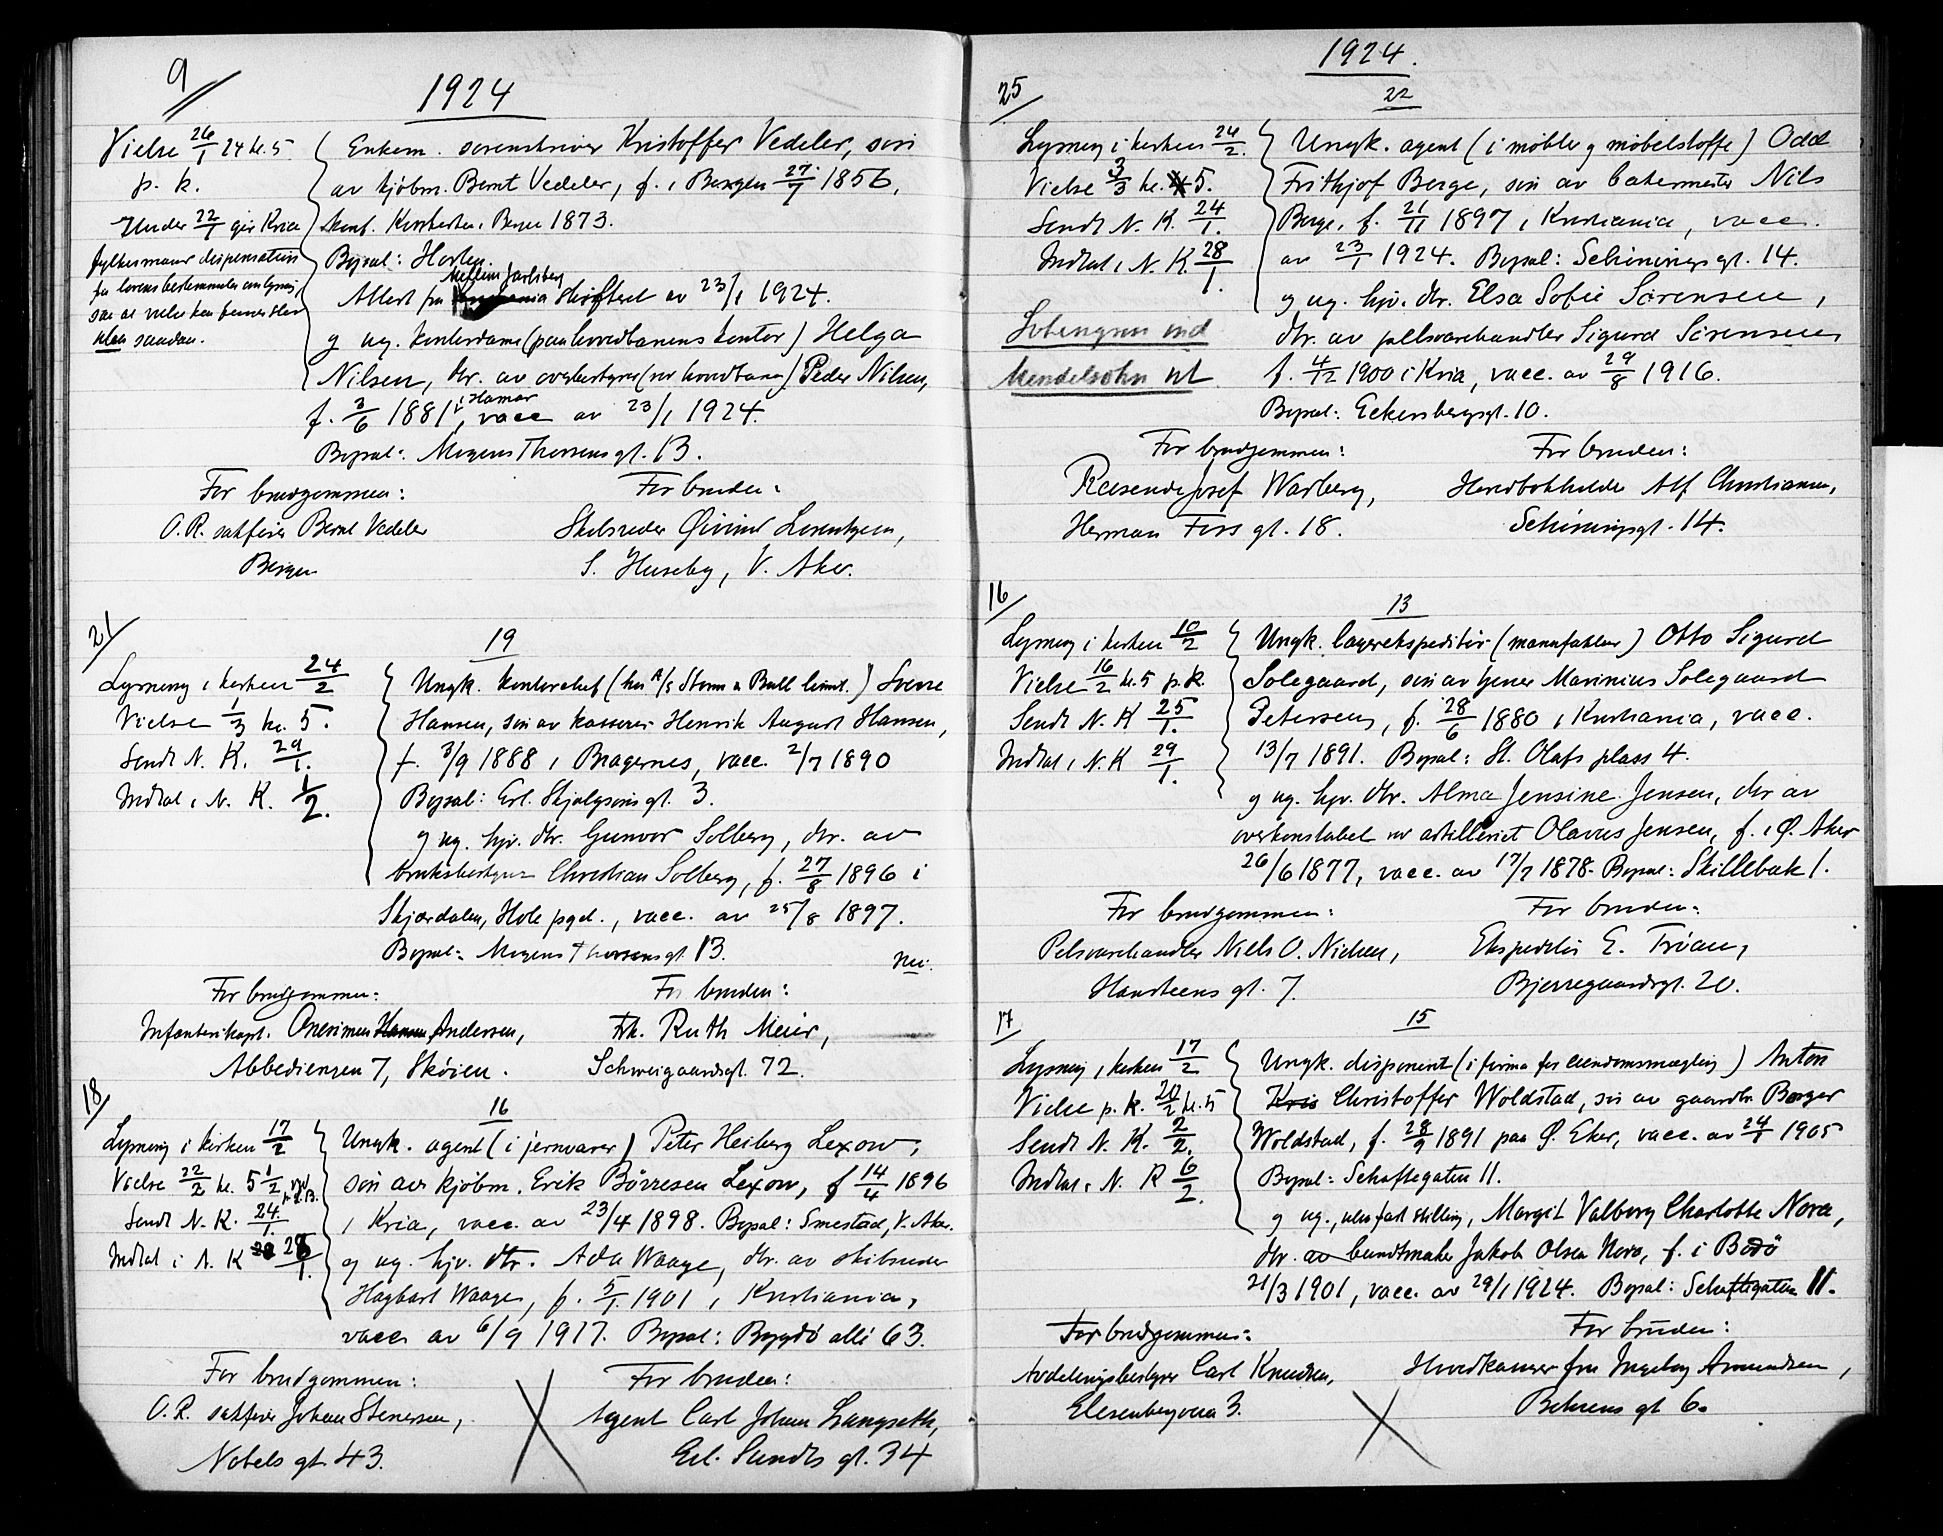 9
1924
Vielse 26/1 24 kl. 5
p. k.
Under 22/1 gir Kria
fylkesmann dispensation
fra lovens bestemmelse om lysning,
saa at vielse kan finne sted
uten saadan.
Enkem. sorenskriver Kristoffer Vedeler, søn
av kjøbm. Bernt Vedeler, f. i Bergen 27/7 1856,
konf. Korskirken, Bergen 1873.
Bopæl: Horten.
Mellem Jarlsberg
Attest fra skifteret av 23/1 1924.
og ug. kontordame (paa hovedbanens kontor) Helga
Nilsen, dtr. av overbestyrer (ved hovedbanen) Peder Nilsen,
f. 3/6 1881 i Hamar, vacc av 23/1 1924.
Bopæl: Mogens Thorsens gt. 13.
For brudgommen:
O.R. sakfører Bernt Vedeler
Bergen
For bruden:
Skibsreder Øivind Lorentzen,
S. Huseby, V. Aker.
21
19
Lysning i kirken 24/2
Vielse 1/3 kl. 5.
Sendt N. K. 29/1.
Indtat i N. K. 1/2.
Ungk. kontorchef (hos A/S Storm & Bull limit.) Sverre
Hansen, søn av kasserer Henrik August Hansen,
f. 3/9 1888 i Bragernes, vacc. 2/7 1890
Bopæl: Erl. Skjalgsøns gt. 3.
og ug. hjv. dtr. Gunvor Solberg, dtr. av
bruksbestyrer Christian Solberg, f. 27/8 1896 i
Skjærdalen, Hole pgd., vacc. av 25/8 1897.
Bopæl: Mogens Thorsens gt. 13.
nei.
For brudgommen:
Infanterikapt. Onesimus Hansen Andersen,
Abbediengen 7, Skøien.
For bruden:
Frk. Ruth Meier,
Schweigaardsgt. 72.
18
16
Lysning i kirken 17/2
Vielse 22/2 kl. 5 1/2
Sendt N. K. 24/1.
Indtat i N. K 28/1.
Ungk. agent (i jernvarer) Peter Heiberg Lexow,
søn av kjøbm. Erik Börresen Lexow, f 14/4 1896
i Kria, vacc. av 23/4 1898. Bopæl: Smestad, V. Aker.
og ug. hjv. dtr. Ada Waage, dtr. av skibsreder
Hagbart Waage, f. 5/1. 1901 i Kristiania,
vacc av 6/9 1917. Bopæl: Bygdö allé 63.
For brudgommen:
O.R. sakfører Johan Stenersen,
Nobels gt 43.
For bruden:
Agent Carl Johan Langseth,
Eil. Sundts gt. 34
1924.
25
22
Lysning i kirken 24/2.
Vielse 3/3 kl. 5.
Sendt N. K. 24/1.
Indtat i N. K. 28/1.
Lohengren ind
Mendelsohn ut
Ungk. agent (i møbler og møbelstoffe) Odd
Frithjof Berge, søn av bakermester Nils
Berge, f. 21/11 1897 i Kristiania, vacc.
av 23/1 1924. Bopæl: Schinings gt. 14.
og ug. hjv. dtr. Elsa Sofie Sørensen,
dtr. av pelsvarehandler Sigurd Sörensen
f. 4/12 1900 i Kria, vacc. av 29/8 1916.
Bopæl: Eckersbergsgt. 10.
For brudgommen:
Reisende Josef Warberg,
Herman Foss gt. 18.
For bruden:
Hovedbokholder Alf Christiansen,
Schiningsgt. 14.
16
13
Lysning i kirken 10/2
Vielse 16/2 kl. 5 p.k.
Sendt N. K 25/1.
Indtat i N. K 29/1.
Ungk. lagerekspeditör (manufaktur) Otto Sigurd
Solegaard, søn av Marinius Solegaard
Petersen, f. 28/6 1880 i Kristiania, vacc.
13/7 1891. Bopæl: St. Olafs plass 4.
og ug. hjv. dtr. Alma Jensine Jensen, dtr av
overkonstabel ved artilleriet Olavus Jensen, f. i Ø. Aker
26/6 1877, vacc. av 17/7 1878. Bopæl: Skillebæk 1.
For brudgommen:
Pelsvarehandler Niels O. Nielsen,
Hansteens gt. 7.
For bruden:
Ekspeditör E. Tröan,
Bjerregaardsgt. 20.
17
15
Lysning i kirken 17/2
Vielse p. k. 20/2 kl. 5
Sendt N. K. 2/2.
Indtat i N. K 6/2.
Ungk. disponent (i firma for eiendomsmægling) Anton
Kris Christoffer Woldstad, søn av gaardbr. Borger
Woldstad, f. 28/9 1891 paa Ø. Eker, vacc. av 24/1 1905
Bopæl: Schaftegaten 11.
og ug., uten fast stilling, Margit Valborg Charlotte Nova,
dtr. av bundtmaker Jakob Olsen Novo, f. i Bodö
21/3 1901, vacc. av 29/1 1924. Bopæl: Schaftegaten 11.
For brudgommen:
Avdelingsbestyrer Carl Knudsen,
Elesenbergveien 3.
For bruden:
Hovedkasserer frk Ingeborg Amundsen,
Behrens gt 6.